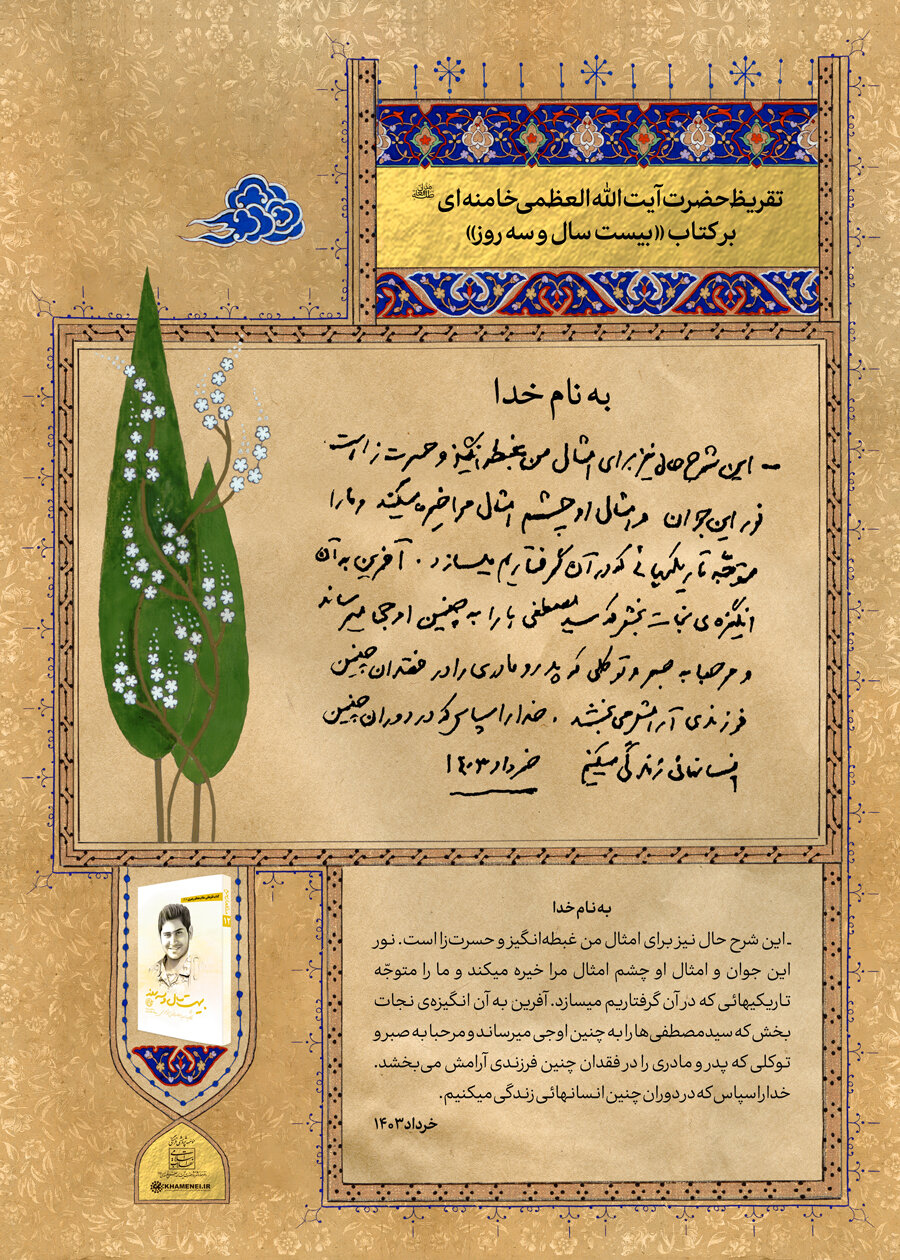 تقریظ حضرت آیت‌الله‌العظمی خامنه‌ای
بر کتاب «بیست سال و سه روز»
به نام خدا
ـ این شرح حال نیز برای امثال من غبطه‌انگیز و حسرت‌زا است
نور این جوان و امثال او چشم امثال مرا خیره میکند و ما را
متوجّه تاریکیهائی که در آن گرفتاریم میسازد. آفرین به آن
انگیزه‌ی نجات بخش که سید مصطفی‌ها را به چنین اوجی میرساند
و مرحبا به صبر و توکلی که پدر و مادری را در فقدان چنین
فرزندی آرامش می‌بخشد. خدا را سپاس که در دوران چنین
انسانهائی زندگی میکنیم
خرداد ۱۴۰۳
به نام خدا
ـ این شرح حال نیز برای امثال من غبطه‌انگیز و حسرت‌زا است. نور
این جوان و امثال او چشم امثال مرا خیره میکند و ما را متوجّه
تاریکیهائی که در آن گرفتاریم میسازد. آفرین به آن انگیزه‌ی نجات
بخش که سید مصطفی‌ها را به چنین اوجی میرساند و مرحبا به صبر و
توکلی که پدر و مادری را در فقدان چنین فرزندی آرامش می‌بخشد.
خدا را سپاس که در دوران چنین انسانهائی زندگی میکنیم.
خرداد ۱۴۰۳
بیست سال و سه روز
KHAMENEI.IR